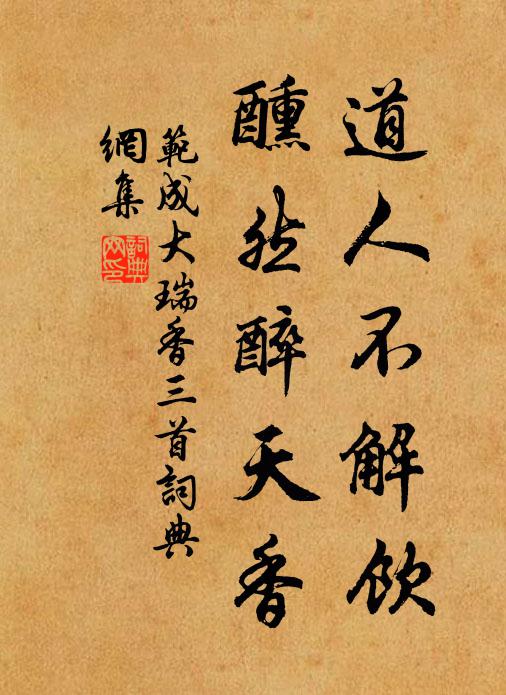 道人不解飲
醺然醉天香
範成大瑞香三首詞典
網集
詞典
网印